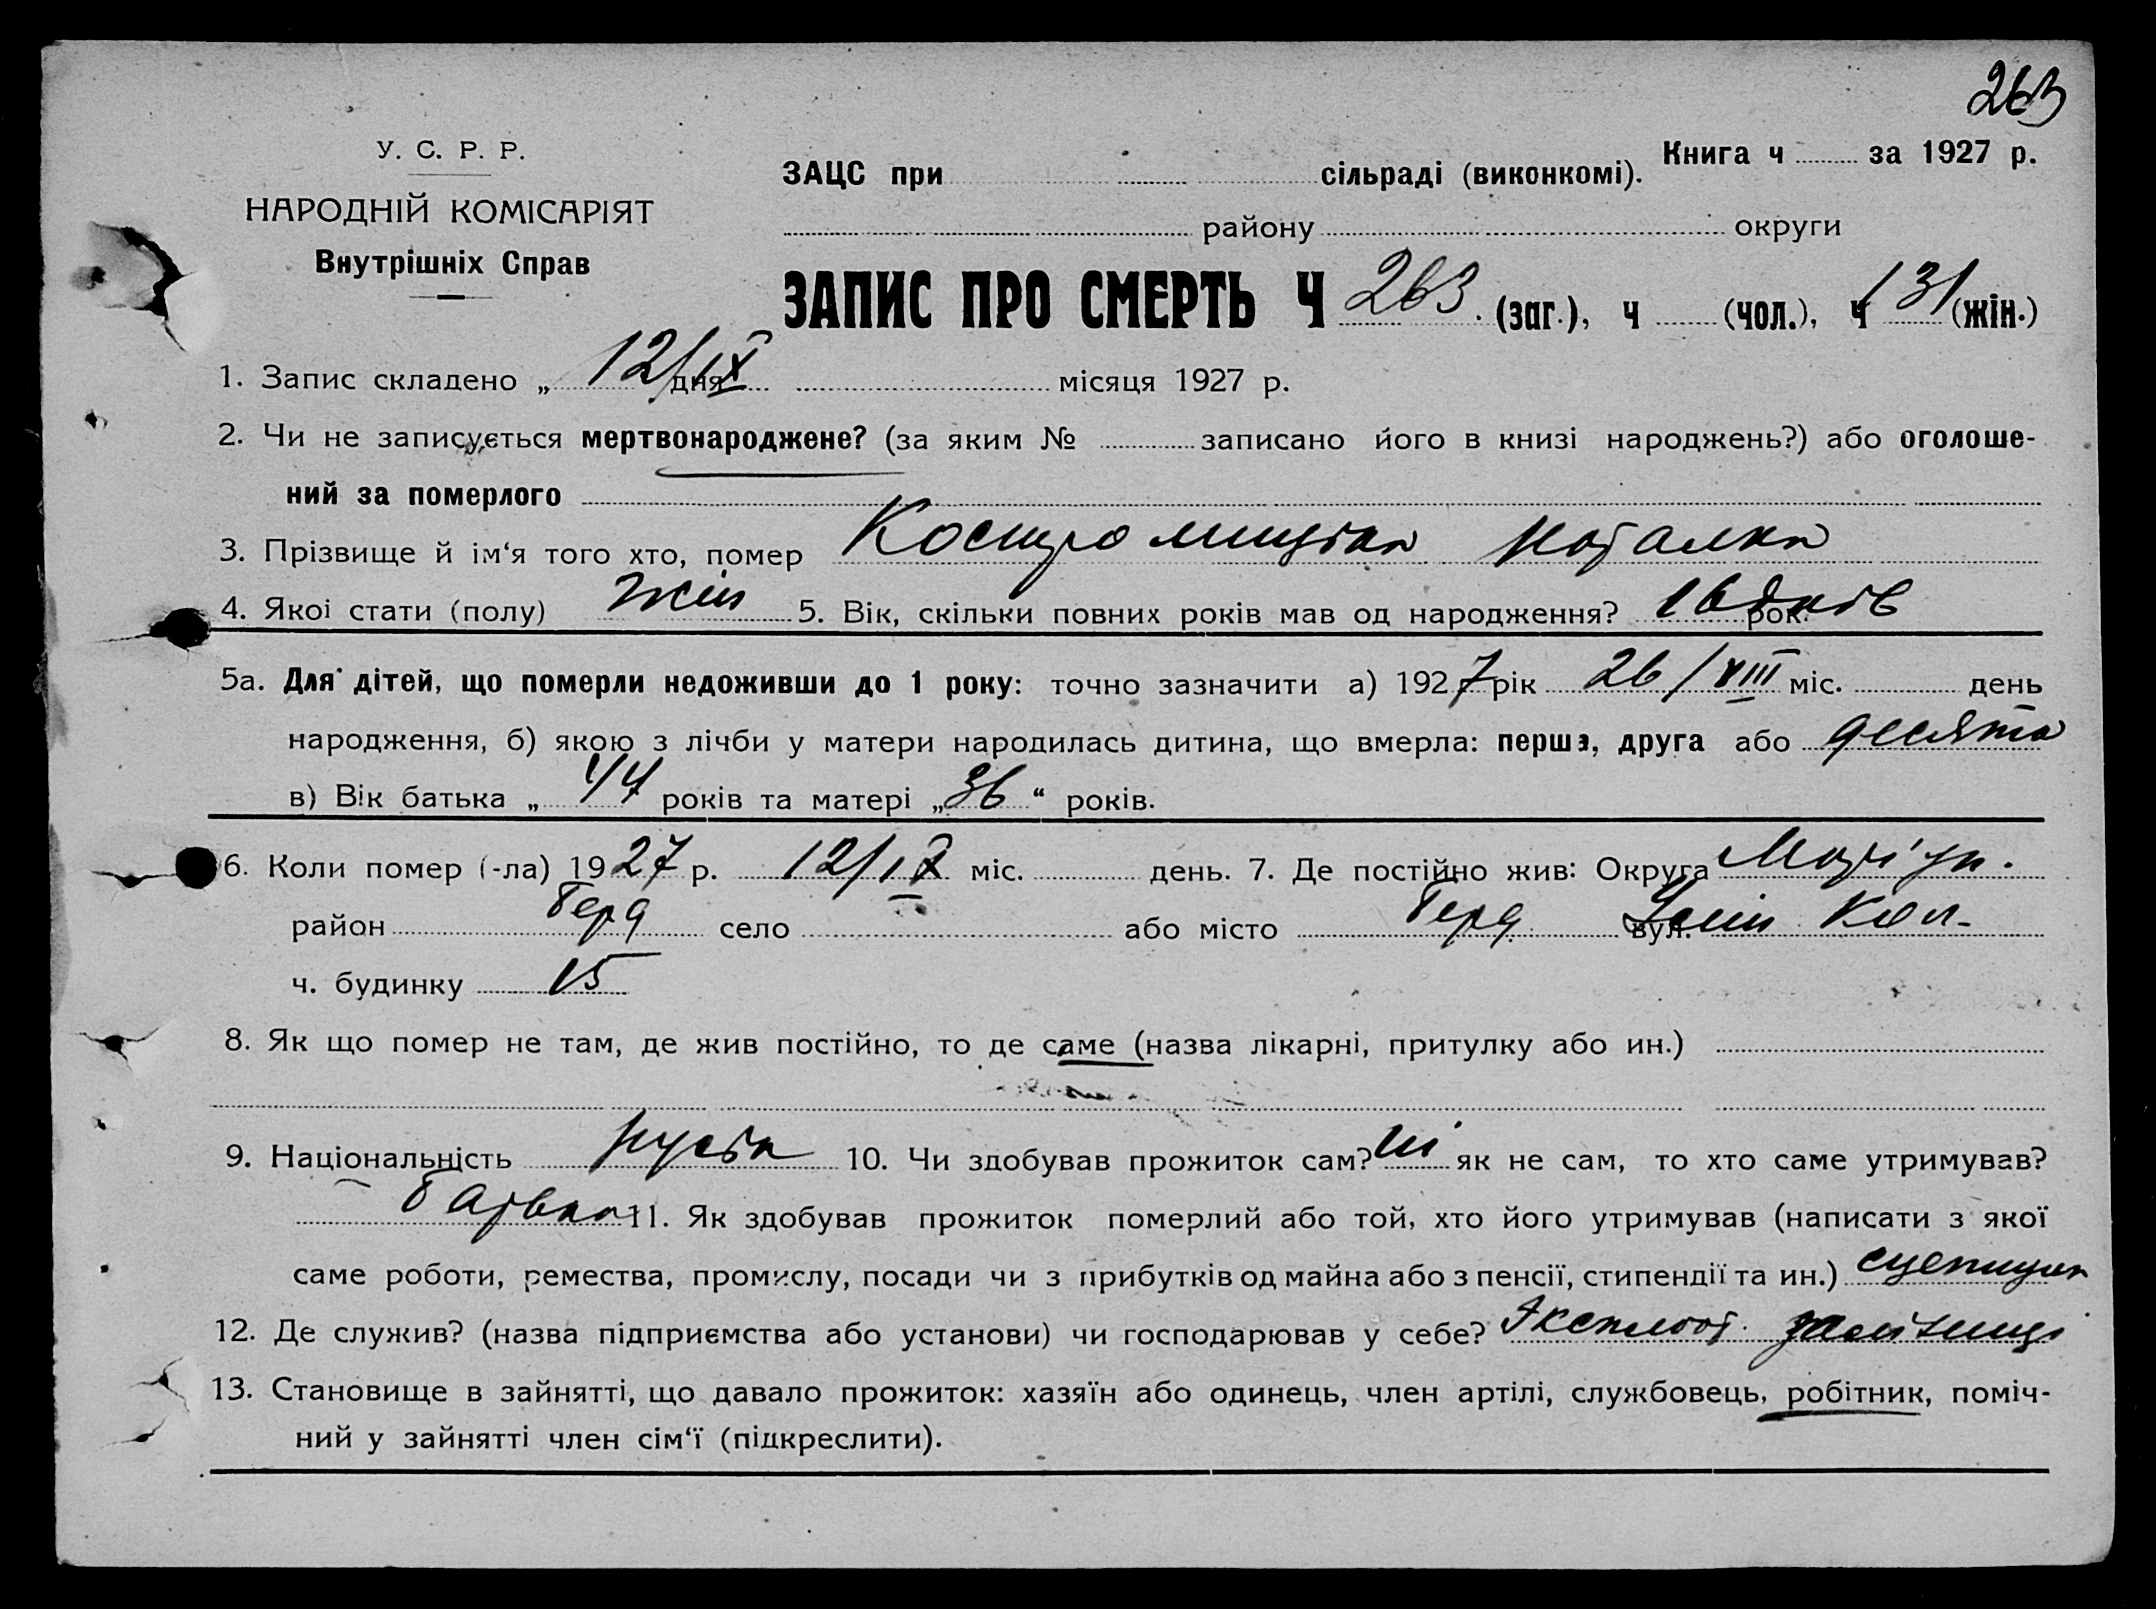 263
У. С. Р. Р.
НАРОДНІЙ КОМІСАРІЯТ
Внутрішніх Справ
Книга ч за 1927 р.
ЗАЦС при сільраді (виконкомі).
району округи
ЗАПИС ПРО СМЕРТЬ Ч 263. (заг.), ч (чол.), ч 131 (жін.)
1. Запис складено „ 12/IX дня місяця 1927 р.
2. Чи не записується мертвонароджене? (за яким № записано його в книзі народжень?) або оголоше-
ний за померлого
3. Прізвище й ім‘я того хто, помер Костромицька Наталка
4. Якої стати (полу) жін 5. Вік, скільки повних років мав од народження? 16 днів рок.
5а. Для дітей, що померли недоживши до 1 року: точно зазначити а) 1927 рік 26/VIII міс. день
народження, б) якою з лічби у матери народилась дитина, що вмерла: перша, друга або десята
в) Вік батька „ 44 років та матері „ 36 “ років.
6. Коли помер (-ла) 1927 р. 12/IX міс. день. 7. Де постійно жив: Округа Маріуп.
район Берд село або місто Берд. вул. Кол-
ч. будинку 15
8. Як що помер не там, де жив постійно, то де саме (назва лікарні, притулку або ин.)
9. Національність руська 10. Чи здобував прожиток сам? ні як не сам, то хто саме утримував?
батько 11. Як здобував прожиток померлий або той, хто його утримував (написати з якої
саме роботи, ремества, промислу, посади чи з прибутків од майна або з пенсії, стипендії та ин.) сцепщик
12. Де служив? (назва підприємства або установи) чи господарював у себе? Експлоат. залізниці
13. Становище в зайнятті, що давало прожиток: хазяїн або одинець, член артілі, службовець, робітник, поміч-
ний у зайнятті член сім‘ї (підкреслити).